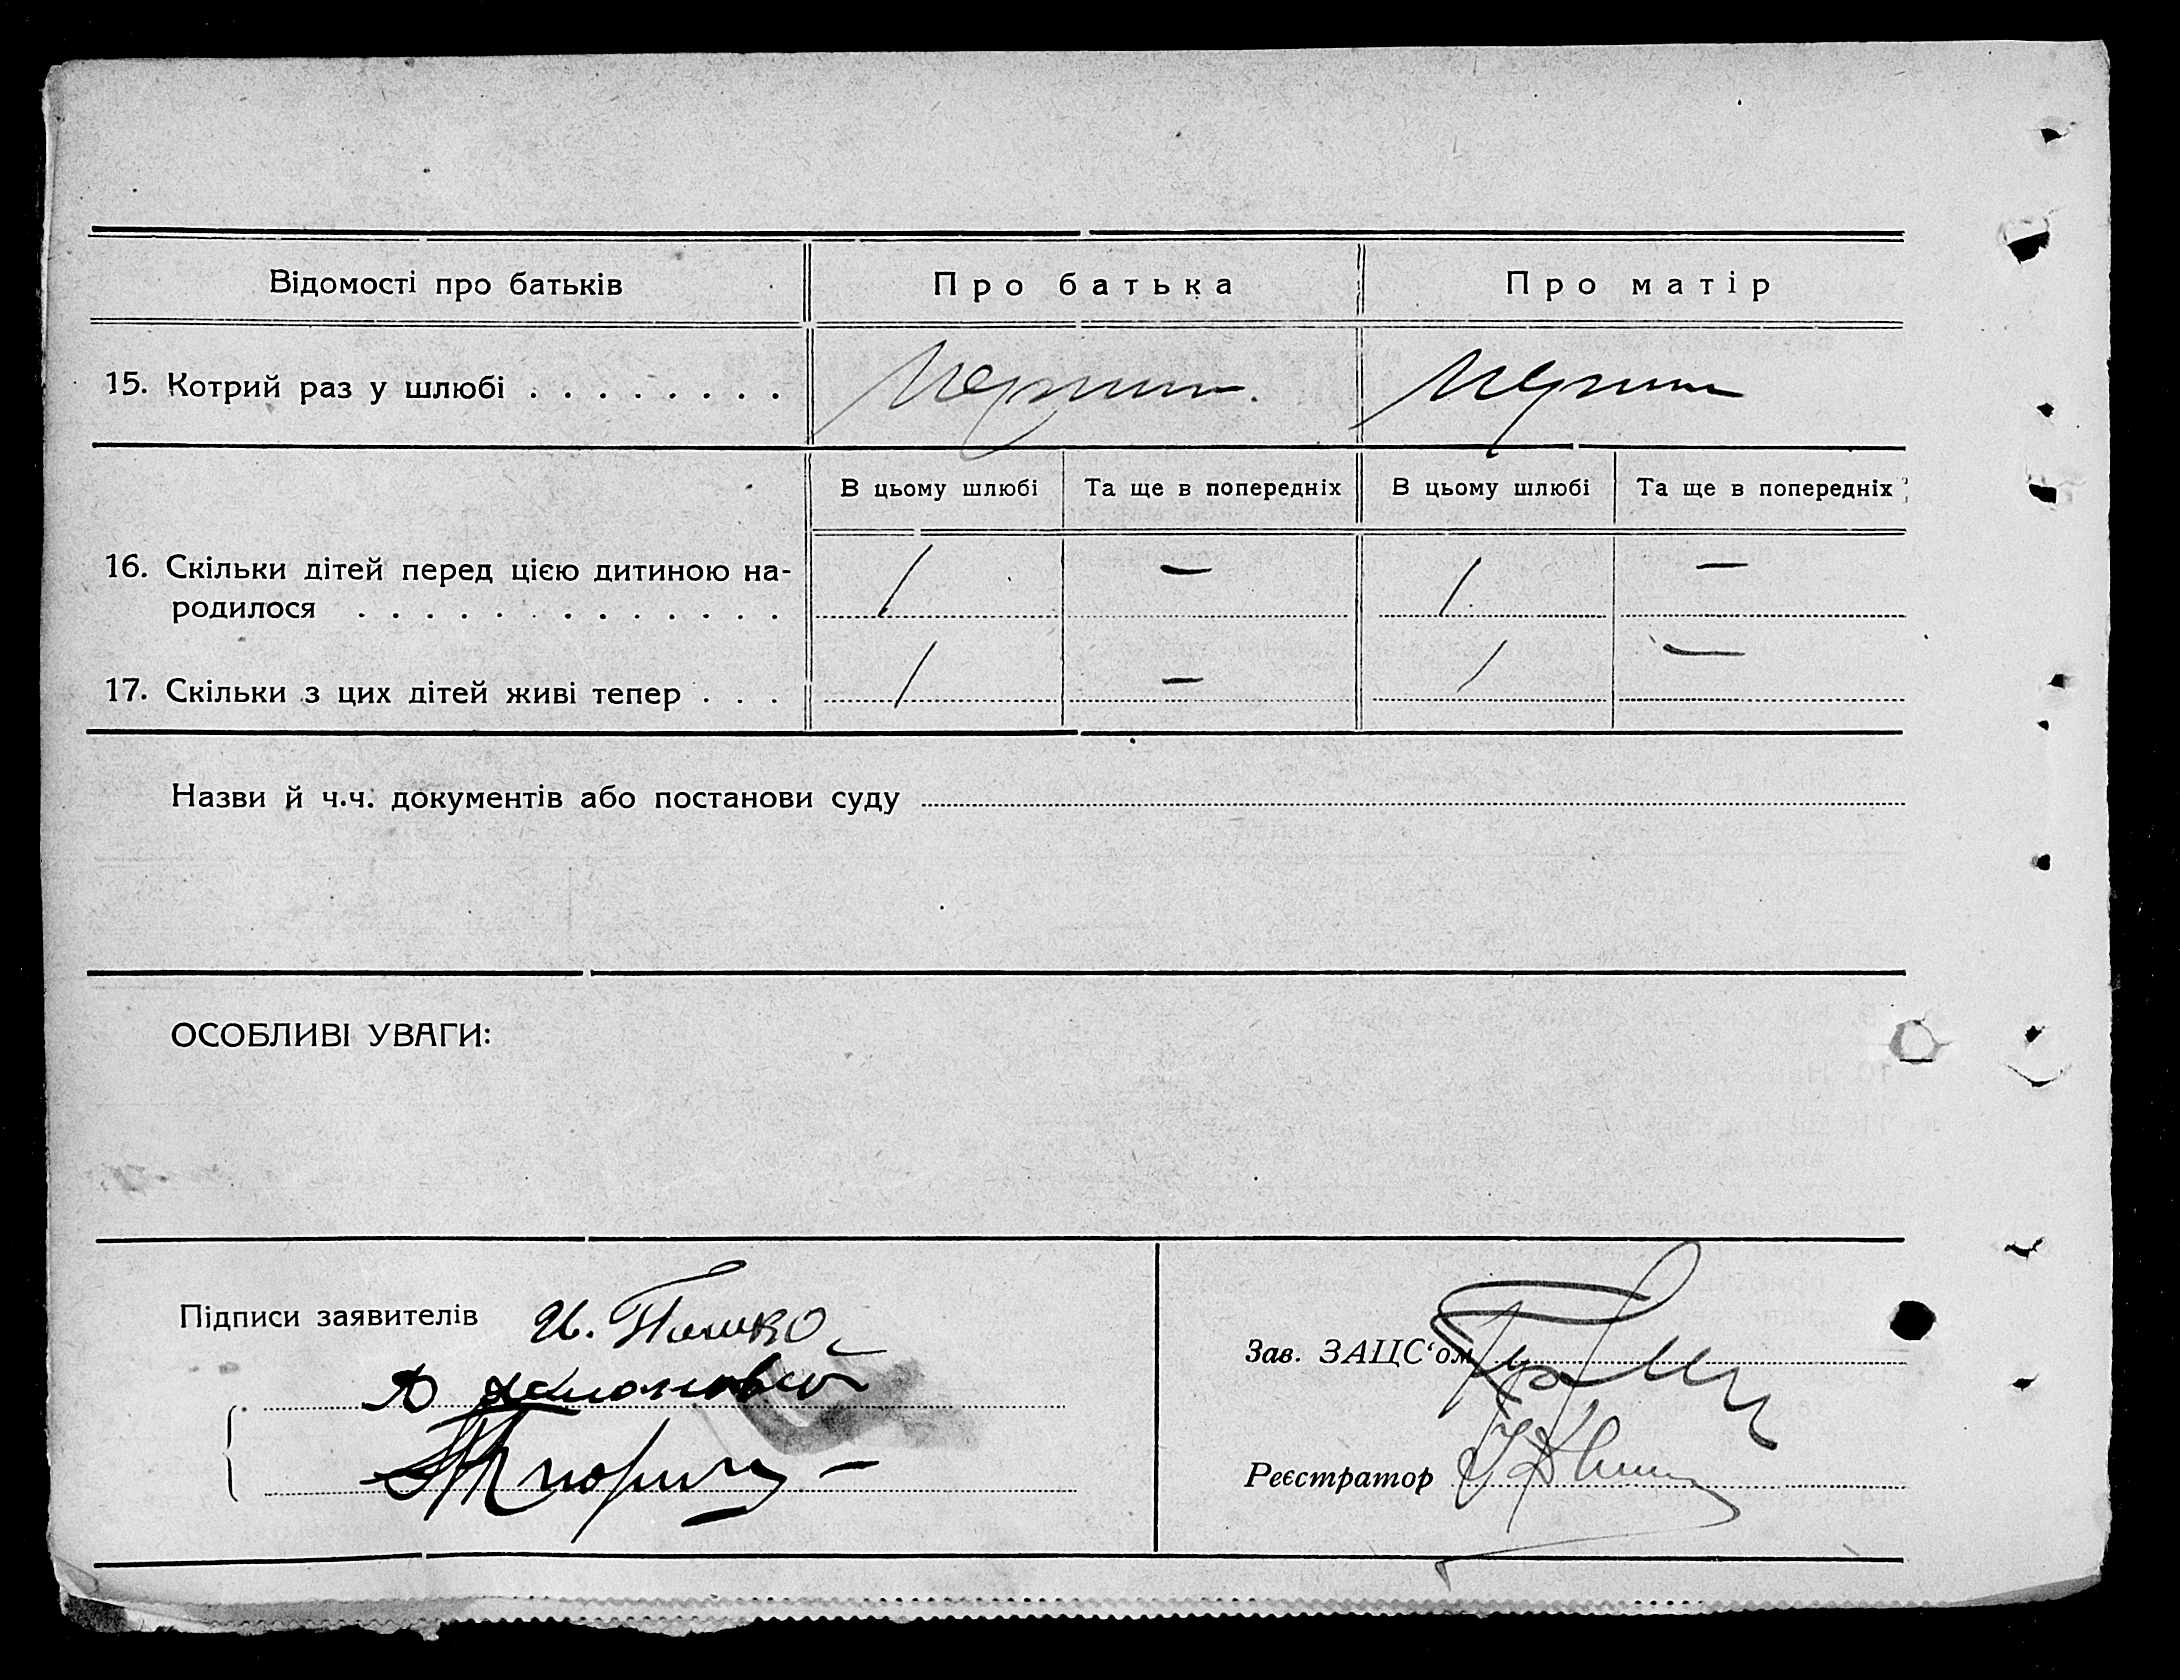 Відомості про батьків Про батька Про матір
15. Котрий раз у шлюбі . . . . . . . .
В цьому шлюбі Та ще в попередніх В цьому шлюбі Та ще в попередніх
16. Скільки дітей перед цією дитиною на-
родилося . . . . . . . . . . . . . 1 — 1 —
17. Скільки з цих дітей живі тепер . . . 1 — 1 —
Назви й ч.ч. документів або постанови суду
ОСОБЛИВІ УВАГИ:
Підписи заявителів
Зав. ЗАЦС‘ом
Реєстратор